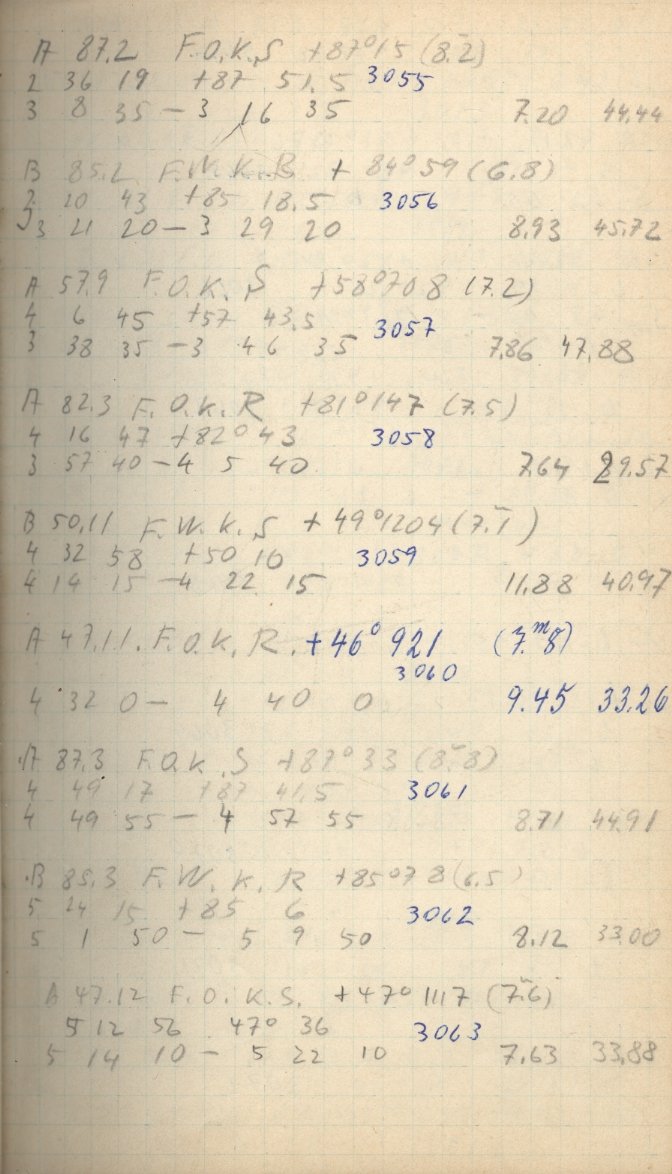 A 87.2 F.O.K.S +87°15 (8.2)
2 36 19 +87 51.5 3055
3 8 35 — 3 16 35 7.20 44.44
B 85.2 F.W.K.B + 84°59 (6.8)
2 20 43 +85 18.5 3056
3 21 20 — 3 29 20 8.93 45.72
A 57.9 F.O.K.S +58°708 (7.2)
4 6 45 +57 43.5 3057
3 38 35 — 3 46 35 7.86 47.88
A 82.3 F.O.K.R +81°147 (7.5)
4 16 47 +82° 43 3058
3 57 40 — 4 5 40 7.64 29.57
B 50.11 F.W.K.S +49°1204 (7.1)
4 32 58 +50 10 3059
4 14 15 — 4 22 15 11.88 40.97
A 47.11. F.O.K.R. +46° 921 (7.ᵐ8)
3060
4 32 0 — 4 40 0 9.45 33.26
A 87.3 F.O.K.S +87°33 (8.8)
4 49 17 +87 41.5 3061
4 49 55 — 4 57 55 8.71 44.91
B 85.3 F.W.K.R +85°78 (6.5)
5 24 15 +85 6 3062
5 1 50 — 5 9 50 8.12 33.00
A 47.12 F.O.K.S. +47° 1117 (7.6)
5 12 56 47° 36 3063
5 14 10 — 5 22 10 7.63 33.88